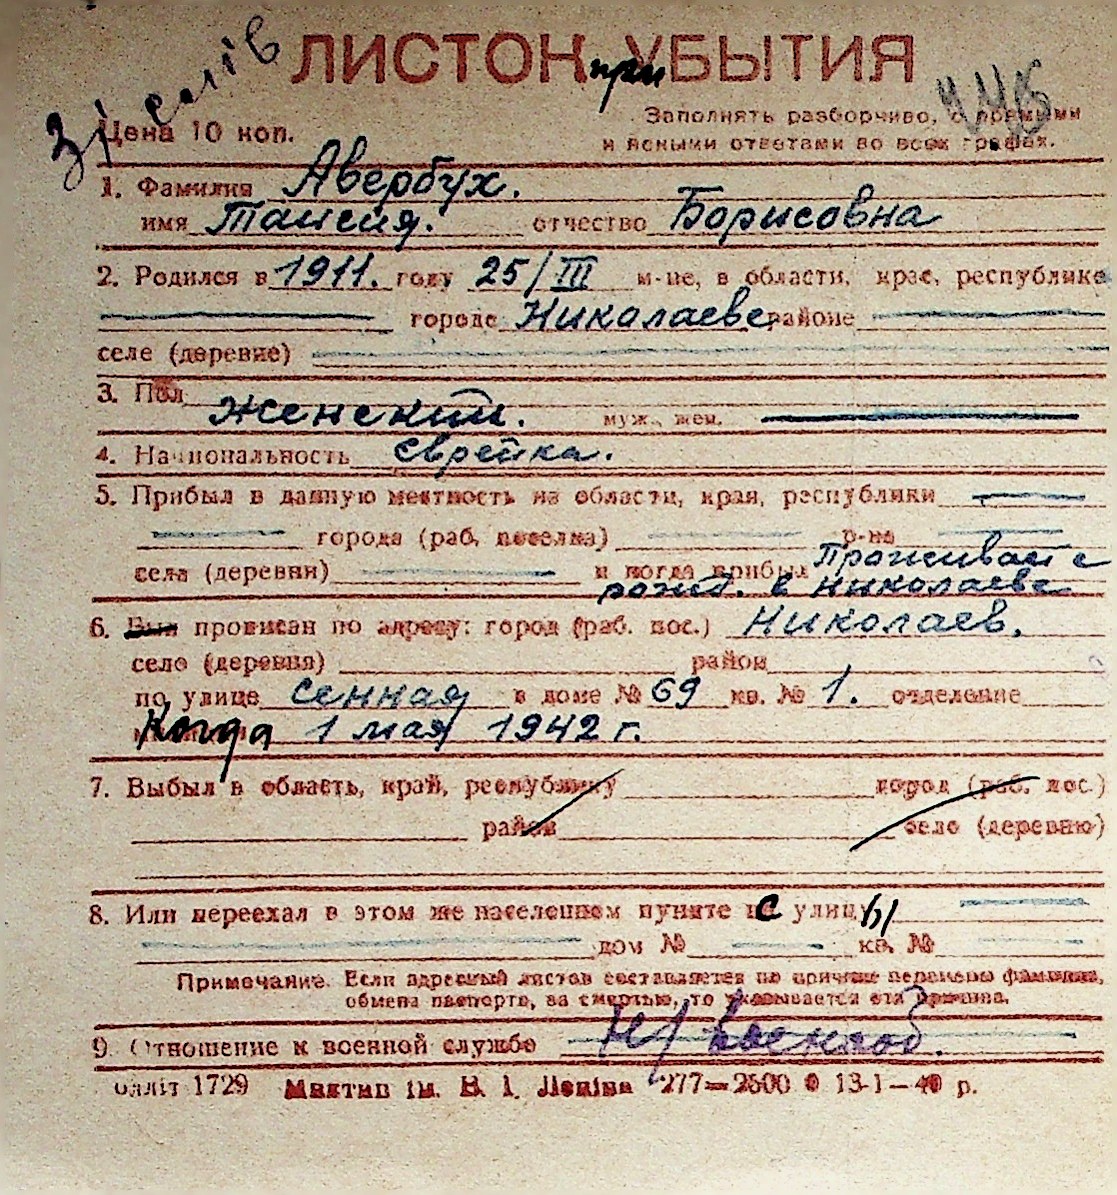 З/селів
ЛИСТОК при УБЫТИЯ
Цена 10 коп.
Заполнять разборчиво, с прямыми
и ясными ответами во всех графах.
1. Фамилия Авербух.
имя Таисия. отчество Борисовна
2. Родился в 1911. году 25/III м-це, в области, крае, республике
городе Николаеве районе
селе (деревне)
3. Пол Женский. муж., жен.
4. Национальность еврейка.
5. Прибыл в данную местность из области, края, республики
города (раб. поселка) р-на
села (деревни) и когда прибыл Проживает с
рожд. в Николаеве
6. Был прописан по адресу: город (раб. пос.) Николаев.
село (деревня) район
по улице Сенная в доме № 69 кв. № 1. отделение
Когда 1 мая 1942 г.
7. Выбыл в область, край, республику город (раб. пос.)
район село (деревню)
8. Или переехал в этом же населенном пункте с улицы
дом № кв. №
Примечание. Если адресный листок составляется по причине перемены фамилии,
обмена паспорта, за смертью, то указывается эта причина.
9. Отношение к военной службе н/военнооб.
Оплiт 1729 Миктип iм. В. I. Ленiна 277—2500 13-1—40 р.